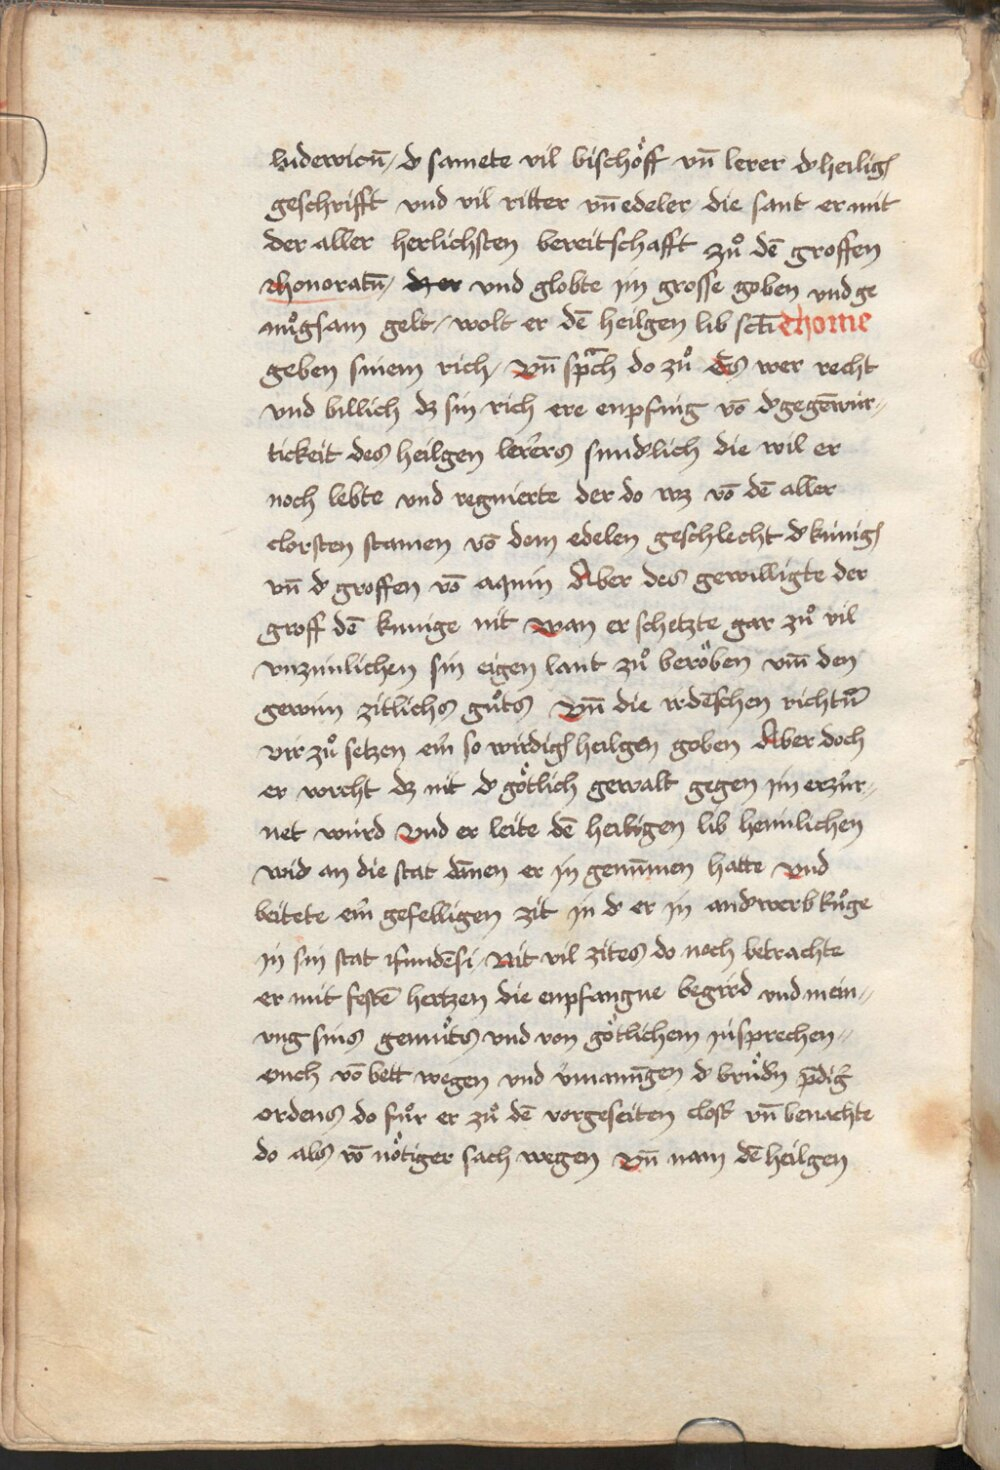 ludewicū / d̕ samete vil bischöff vn̄ lerer d̕ heilig̕
geschrifft vnd vil ritter vn̄ edeler die sant er mit
der aller herlichsten bereitschafft zuͦ dē groffen
rhonoratū / vnd globte jm grosse goben vnd ge
nuͦgsam gelt / wolt er dē heilgen lib sctī thome
geben sinem rich / Vn̄ sprach do zuͦ Es wer recht
vnd billich dz sin rich ere enpfing vō d̕ gegēwür-
tickeit des heilgen lerers sund̕lich die wil er
noch lebte vnd regnierte der do wz vō dē aller
clorsten stamen vō dem edelen geschlecht d̕ künig̕
vn̄ d̕ groffen vō aquin Aber des gewilligte der
groff dē kunige nit wan er schetzte gar zuͦ vil
vnzimlichen sin eigen lant zuͦ beröben vm̄ den
gewin zitlichs guͦts Vn̄ die irdēschen richtuͦ
vir zuͦ setzen eim so wirdig̕ heilgen goben Aber doch
er vorcht dz nit d̕ götlich gewalt gegen jm erzür-
net würd Vnd er leite dē heiligen lib heimlichen
wid̕ an die stat dānen er jn genūmen hatte Vnd
beitete eim gefelligen zit jn d̕ er jn and̕werb fuͤge
jn sin stat fundēsi / Nit vil zites do noch betrachte
er mit festē hertzen die enpfangne begird vnd mein-
vng sins gemuͤts vnd von götlichem jnsprechen-
ouch vō bett wegen vnd v̕manūgen d̕ bruͤd̕n p̄dig̕
ordens do fuͦr er zuͦ dē vorgeseiten clost̕ vn̄ benachte
do als vō nötiger sach wegen Vn̄ nam dē heilgen